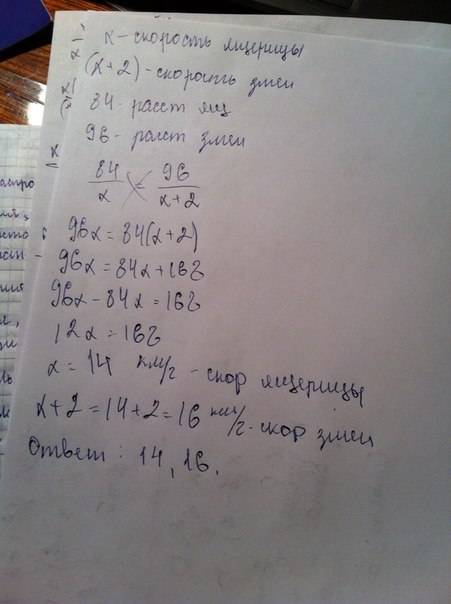 x - скорость ящерицы
(x+2) - скорость змеи
84 - расст ящ
96 - расст змеи
84/x = 96/x+2
96x = 84(x+2)
96x = 84x + 168
96x - 84x = 168
12x = 168
x = 14 км/г - скор ящерицы
x+2 = 14+2 = 16 км/г - скор змеи
Ответ: 14, 16.